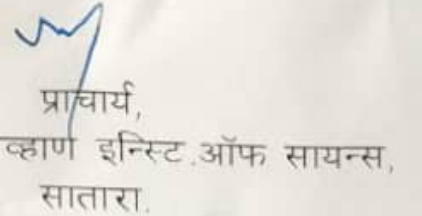 प्राचार्य,
व्हाण इन्स्टि.ऑफ सायन्स,
सातारा.